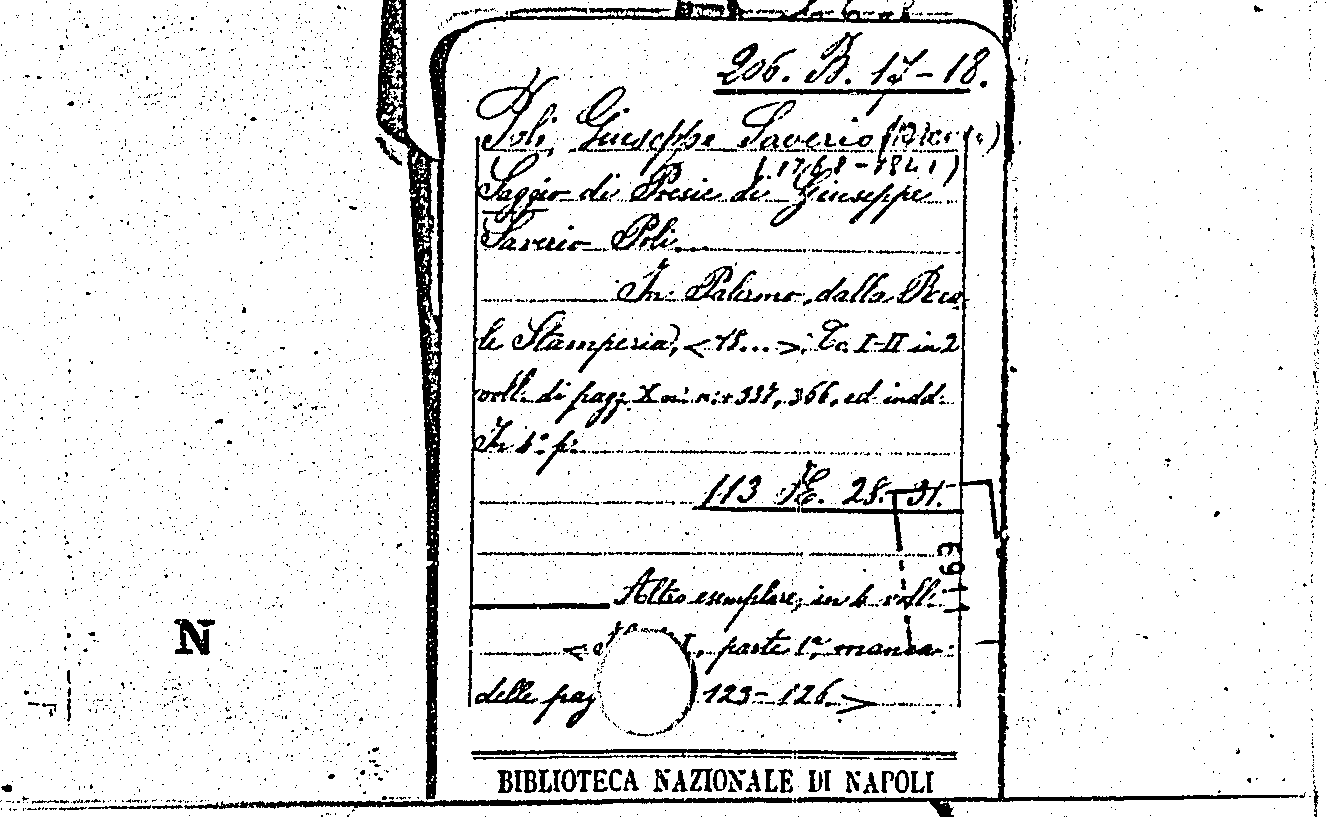 206. B. 17-18.
Poli, Giuseppe Saverio
Saggio di Poesie di Giuseppe
Saverio Poli.
In Palermo, dalla Rea-
le Stamperia, <18...>. To. I-II in 2
voll. di pagg. X n. n. + 337, 366, ed indd.
In 4° p.
113 E. 28-31.
63
Altro esemplare, in 4 voll.
< I, parte 1ª, manca
delle pag 123-126. >
N
BIBLIOTECA NAZIONALE DI NAPOLI